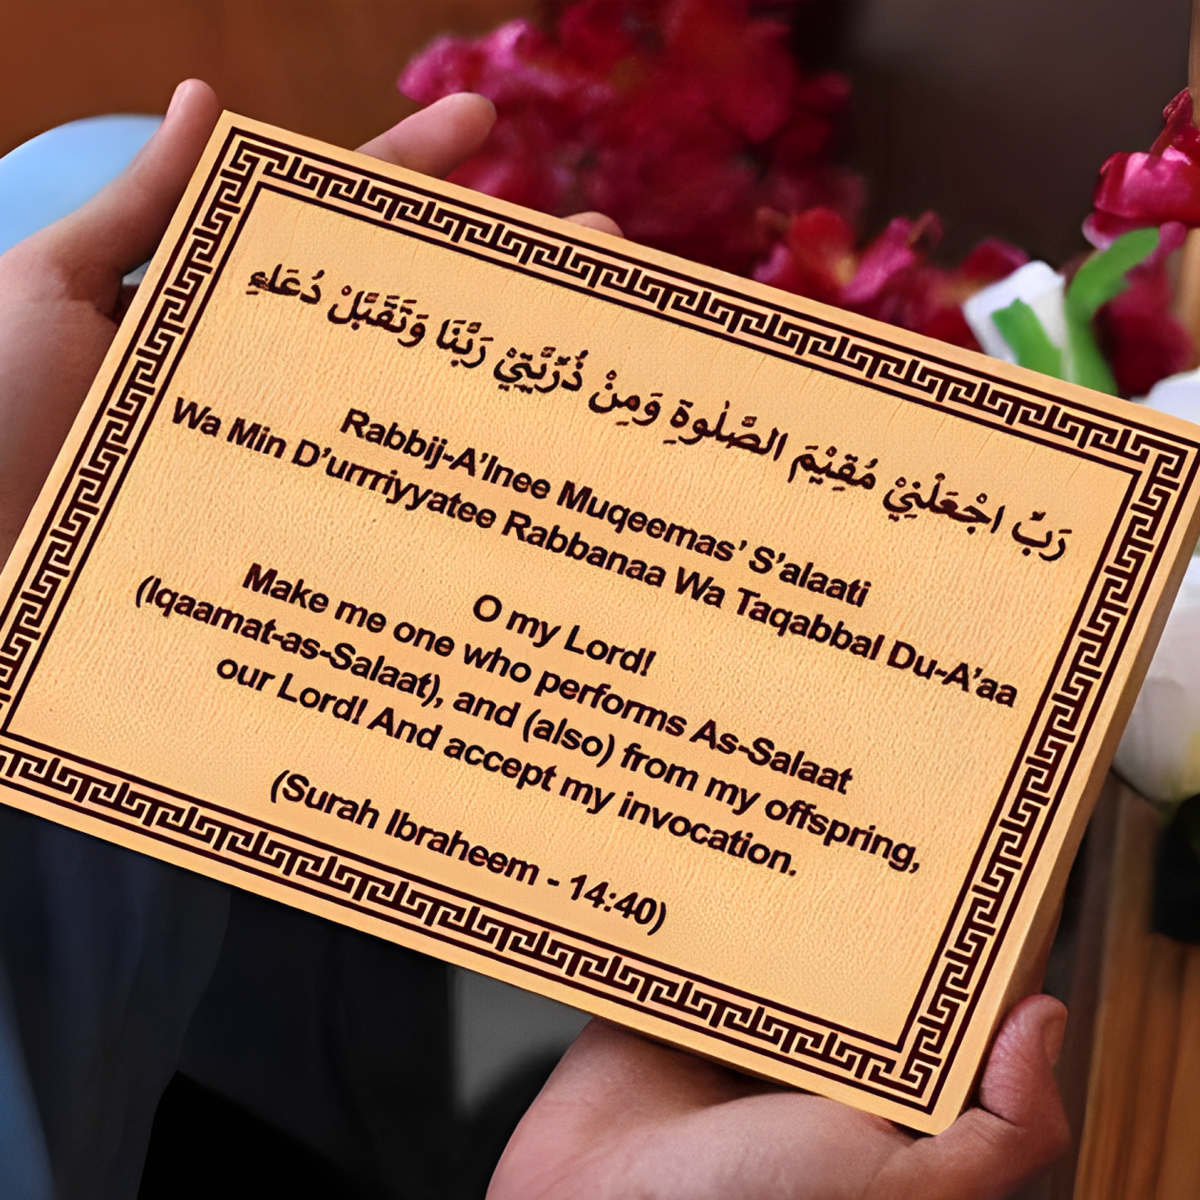 رَبِّ اجْعَلْنِيْ مُقِيْمَ الصَّلٰوةِ وَمِنْ ذُرِّيَّتِيْ رَبَّنَا وَتَقَبَّلْ دُعَاءِ
Rabbij-A'lnee Muqeemas' S'alaati
Wa Min D'urrriyyatee Rabbanaa Wa Taqabbal Du-A'aa
O my Lord!
Make me one who performs As-Salaat
(Iqaamat-as-Salaat), and (also) from my offspring,
our Lord! And accept my invocation.
(Surah Ibraheem - 14:40)